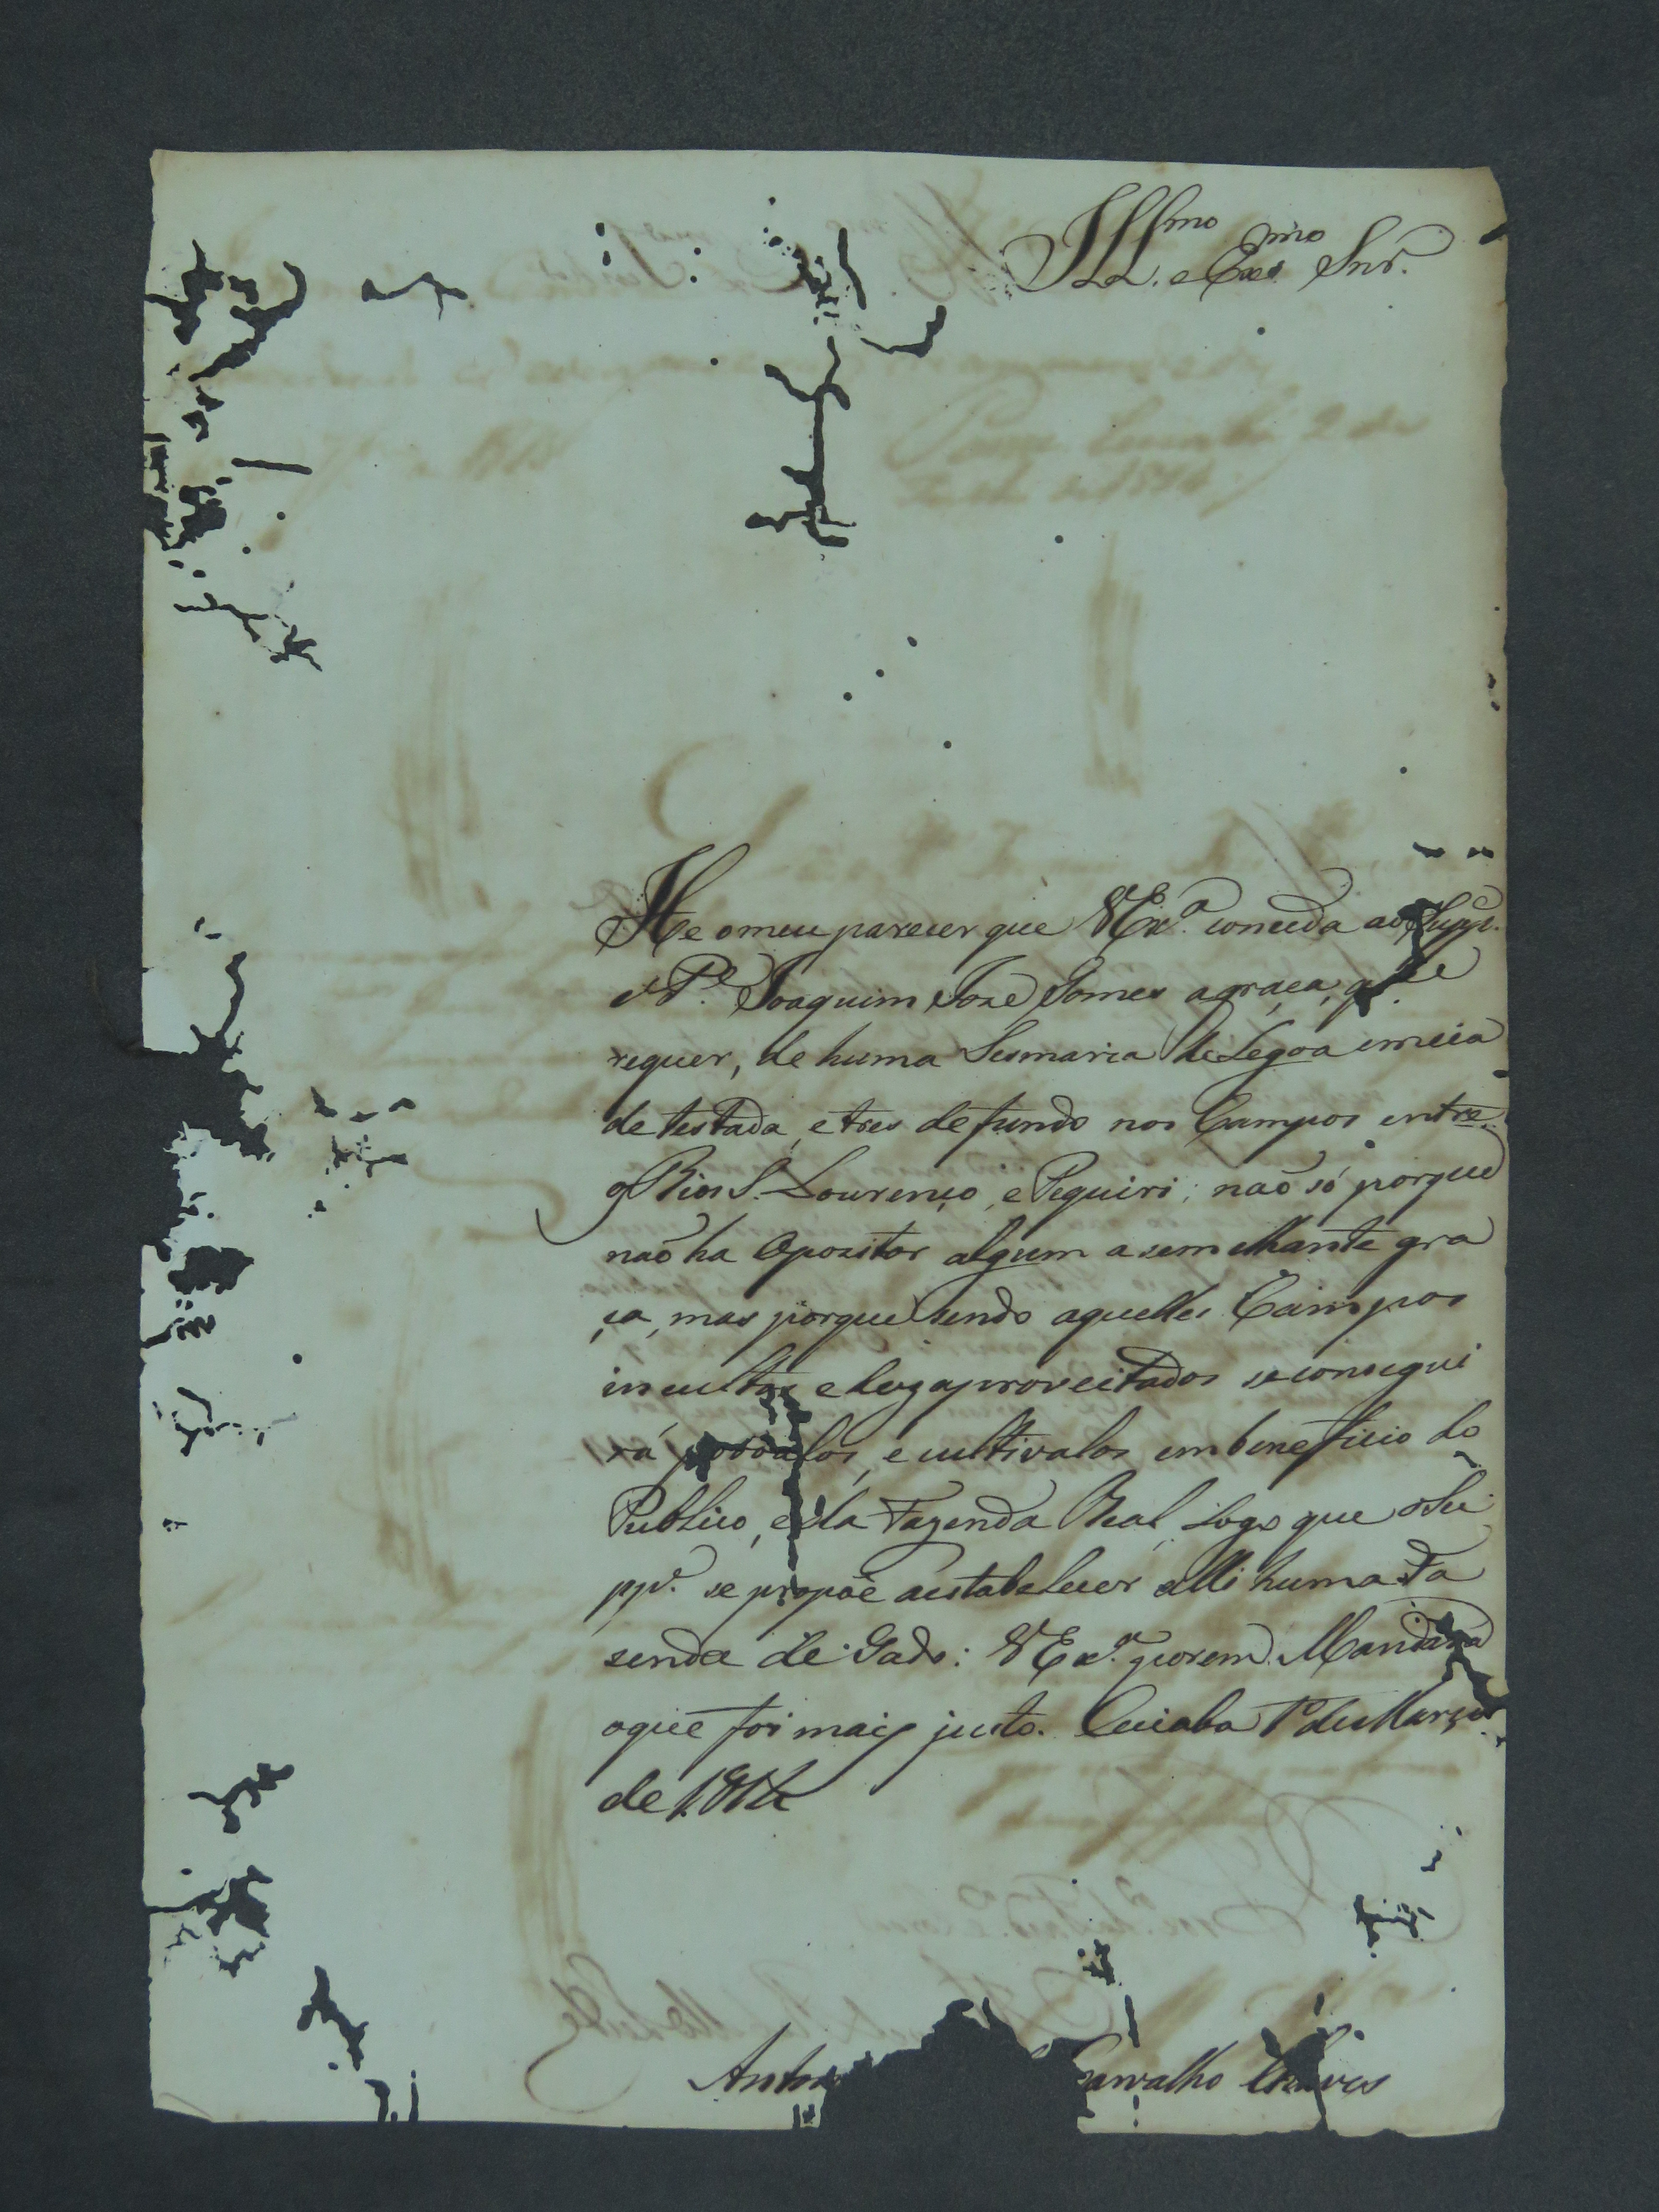 Ill.mo e Ex.mo Snr.
He o meu parecer que VEx.a conceda ao Supp.
o P.e Joaquim Jose Gomes a graça, q̃ elle
requer, de huma Sesmaria de Legoa e meia
de testada, e tres de fundo nos Campos entre
os Rios S. Lourenço, e Pequiri; naõ só porque
naõ ha Opozitor algum a semelhante gra
ça, mas porque sendo aquelles Campos
incultos e dezaproveitados se consegui
rá povoalos, e cultivalos em beneficio do
Publico, e da Fazenda Real, logo que o Su
pp.e se propõe a estabelecer alli huma Fa
senda de Gado: VEx.a porem Mandará
o que for mais justo. Cuiaba 1º de Março
de 1814
Anto Carvalho Chaves